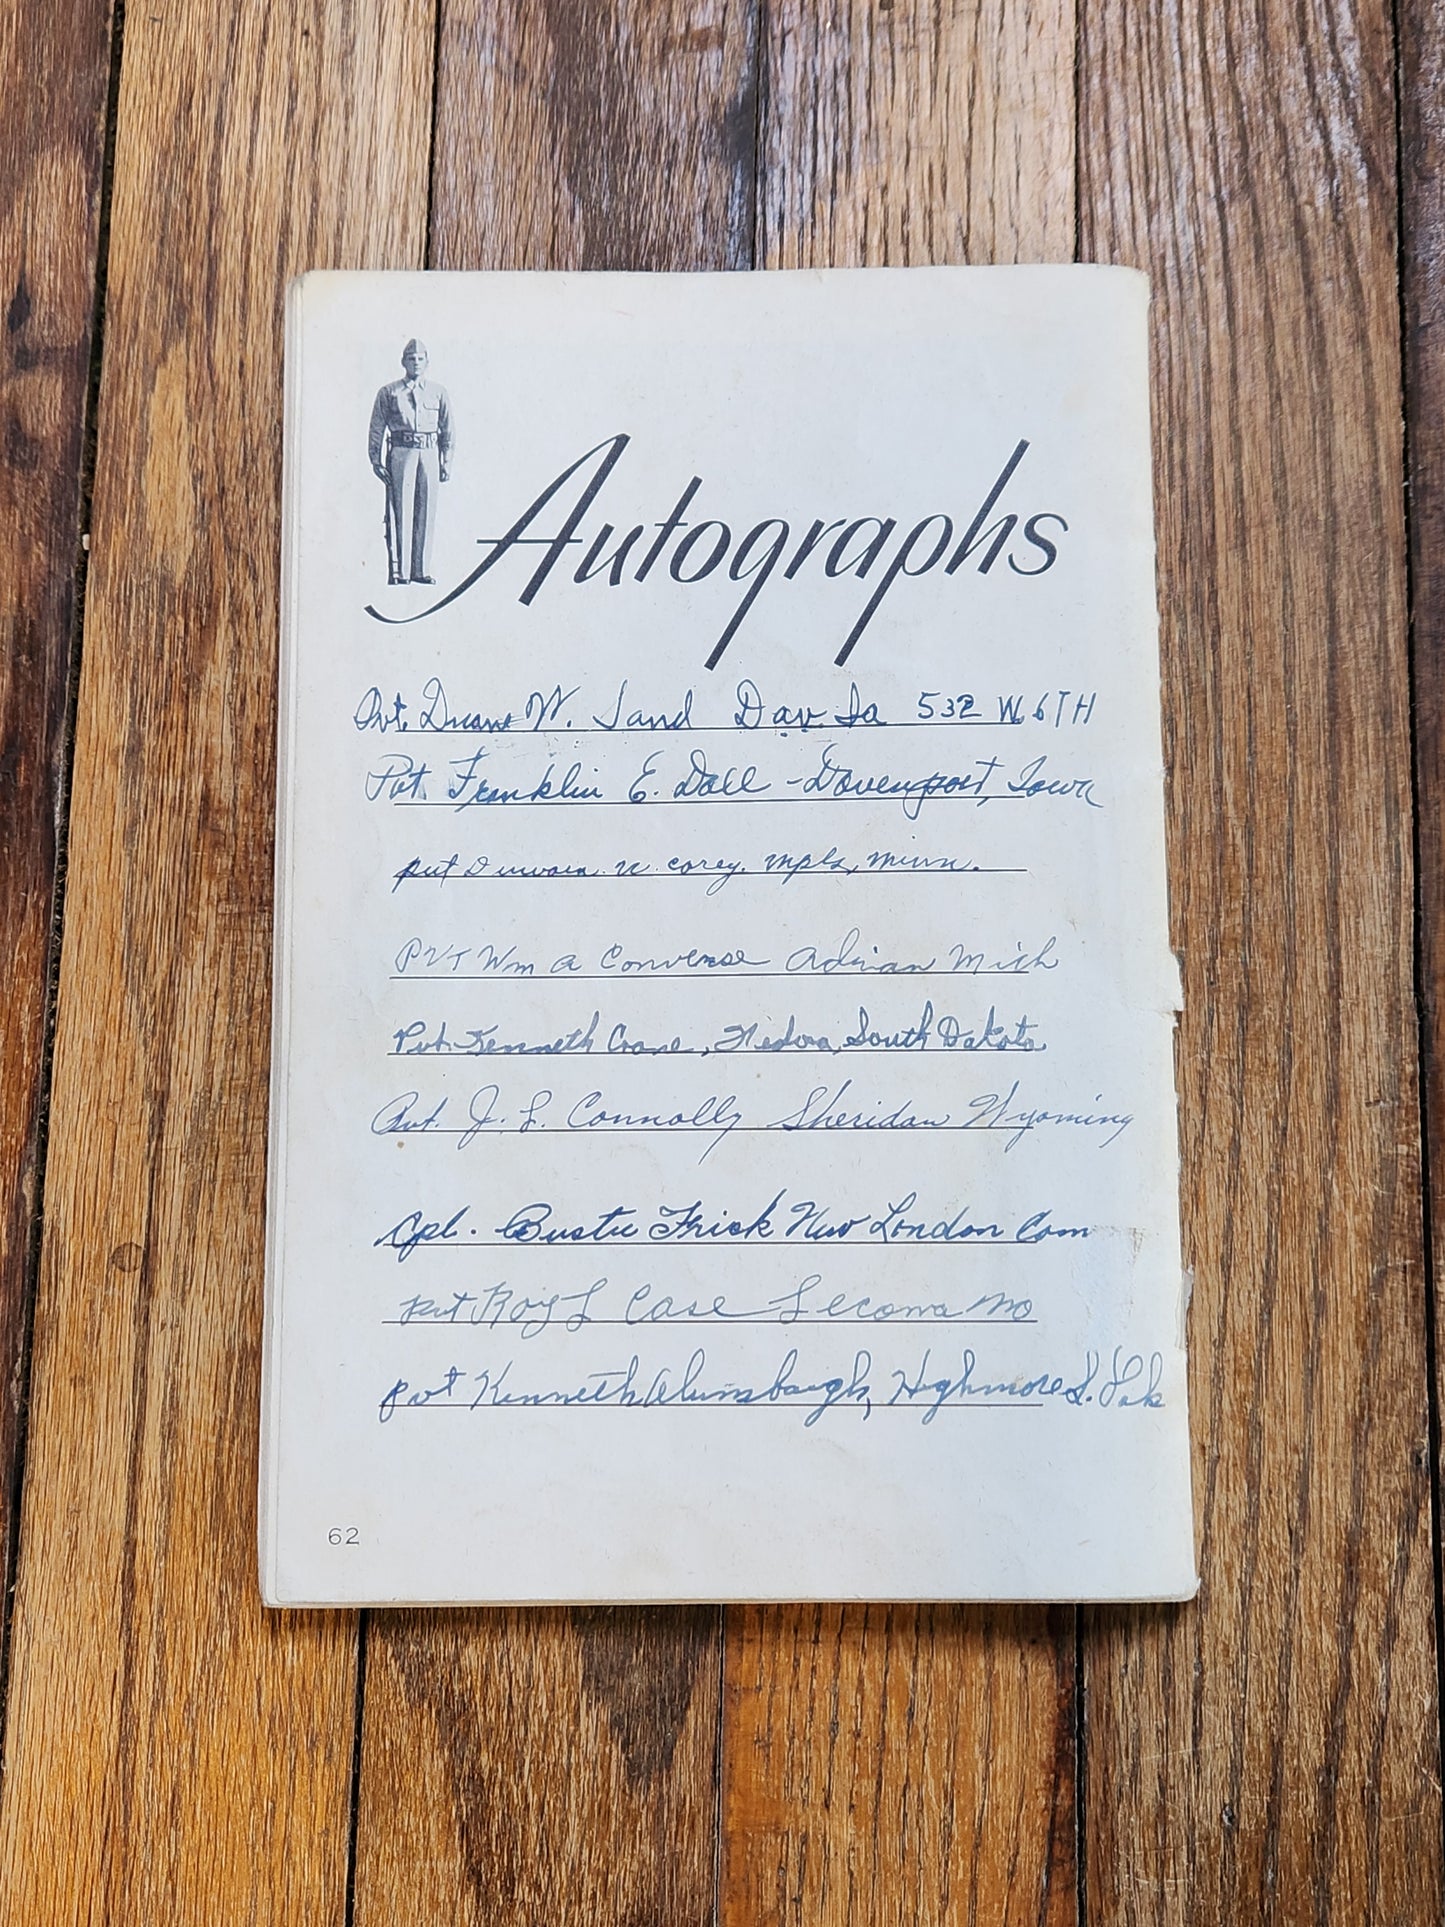 Autographs
Pvt. Duane W. Sand Dav. Ia 532 W. 6TH
Pvt. Franklin E. Doll - Davenport, Iowa
pvt N. corey. mpls, minn.
PVT Wm A Converse Adrian Mich
Pvt. Kenneth Crane, South Dakota
Pvt. J. L. Connolly Sheridan Wyoming
Cpl. Buster Frick New London Conn
Pvt Roy L Case Mo
Pvt Kenneth Alumbaugh, Highmore S. Dak
62